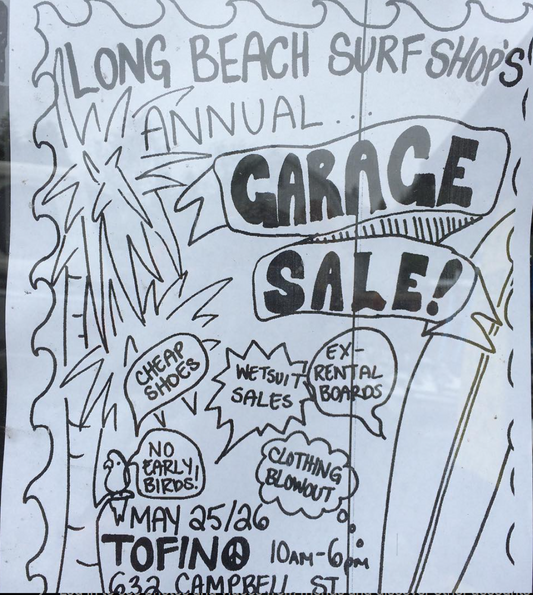 LONG BEACH SURF SHOP'S
ANNUAL...
GARAGE
SALE!
CHEAP
SHOES
WETSUIT
SALES
EX-
RENTAL
BOARDS
NO
EARLY
BIRDS!
CLOTHING
BLOWOUT
MAY 25/26
TOFINO 10AM-6PM
632 CAMPBELL ST